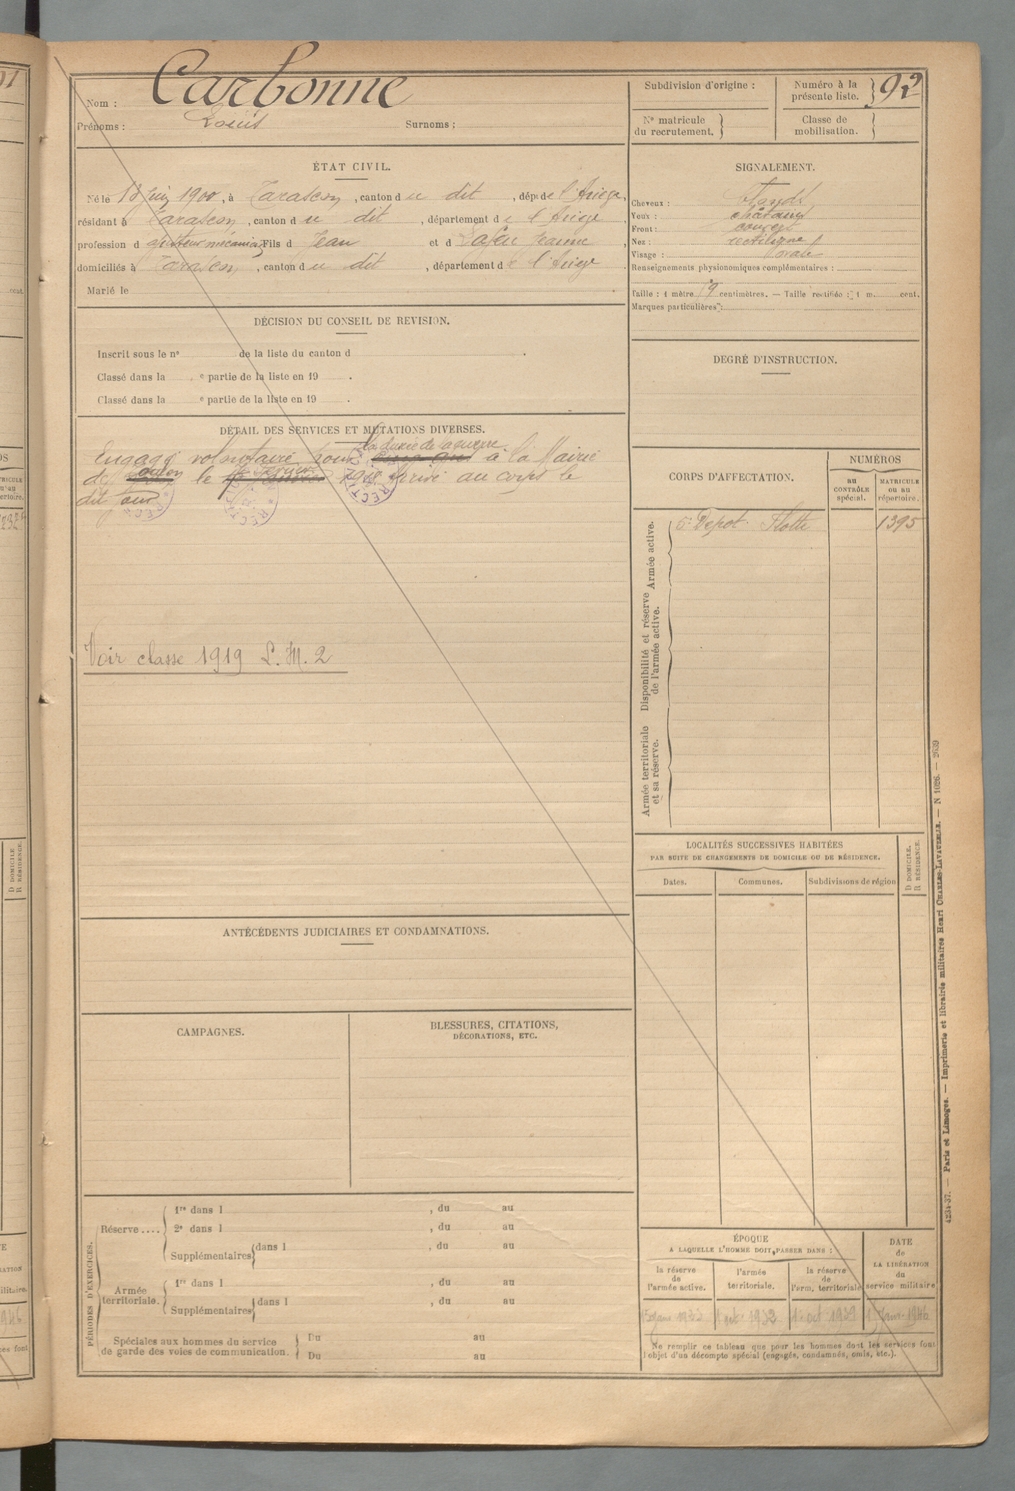 91
Nom : Carbonne
Prénoms : Louis Surnoms :
Subdivision d'origine :
Numéro à la présente liste. } 92
N° matricule du recrutement. }
Classe de mobilisation. }
ÉTAT CIVIL.
Né le 18 Juin 1900, à Tarascon, canton du dit, dép. de l'Ariège,
résidant à Tarascon, canton du dit, département de l'Ariège
profession d'ajusteur mécanicien, Fils de Jean et de Jeanne
domiciliés à Tarascon, canton du dit, département de l'Ariège
Marié le
SIGNALEMENT.
Cheveux : blonds
Yeux : châtains
Front : couvert
Nez : rectiligne
Visage : ovale
Renseignements physionomiques complémentaires :
Taille : 1 mètre centimètres. — Taille rectifiée : 1 m. cent.
Marques particulières :
DÉCISION DU CONSEIL DE REVISION.
Inscrit sous le n° de la liste du canton d .
Classé dans la e partie de la liste en 19 .
Classé dans la e partie de la liste en 19 .
DEGRÉ D'INSTRUCTION.
DÉTAIL DES SERVICES ET MUTATIONS DIVERSES.
la durée de la guerre
Engagé volontaire pour à la Mairie
de Toulon le 1918 Arrivé au corps le
dit jour
Voir classe 1919 L. M. 2
CORPS D'AFFECTATION.
NUMÉROS
au CONTRÔLE spécial.
MATRICULE ou au répertoire.
Armée active.
Dépot Flotte 1395
Disponibilité et réserve de l'armée active.
Armée territoriale et sa réserve.
LOCALITÉS SUCCESSIVES HABITÉES
PAR SUITE DE CHANGEMENTS DE DOMICILE OU DE RÉSIDENCE.
Dates. Communes. Subdivisions de région
D. DOMICILE. R. RÉSIDENCE.
ANTÉCÉDENTS JUDICIAIRES ET CONDAMNATIONS.
CAMPAGNES.
BLESSURES, CITATIONS,
DÉCORATIONS, ETC.
PÉRIODES D'EXERCICES.
Réserve .... { 1re dans l , du au
2e dans l , du au
Supplémentaires { dans l , du au
Armée territoriale. { 1re dans l , du au
Supplémentaires { dans l , du au
Spéciales aux hommes du service de garde des voies de communication. { Du au
Du au
ÉPOQUE
A LAQUELLE L'HOMME DOIT PASSER DANS :
la réserve de l'armée active.
l'armée territoriale.
la réserve de l'arm. territoriale
DATE de LA LIBÉRATION du service militaire.
1932 1939 1946
Ne remplir ce tableau que pour les hommes dont les services font
l'objet d'un décompte spécial (engagés, condamnés, omis, etc.).
4234-37. — Paris et Limoges. — Imprimerie et librairie militaires Henri CHARLES-LAVAUZELLE. — N 1026. — 2639